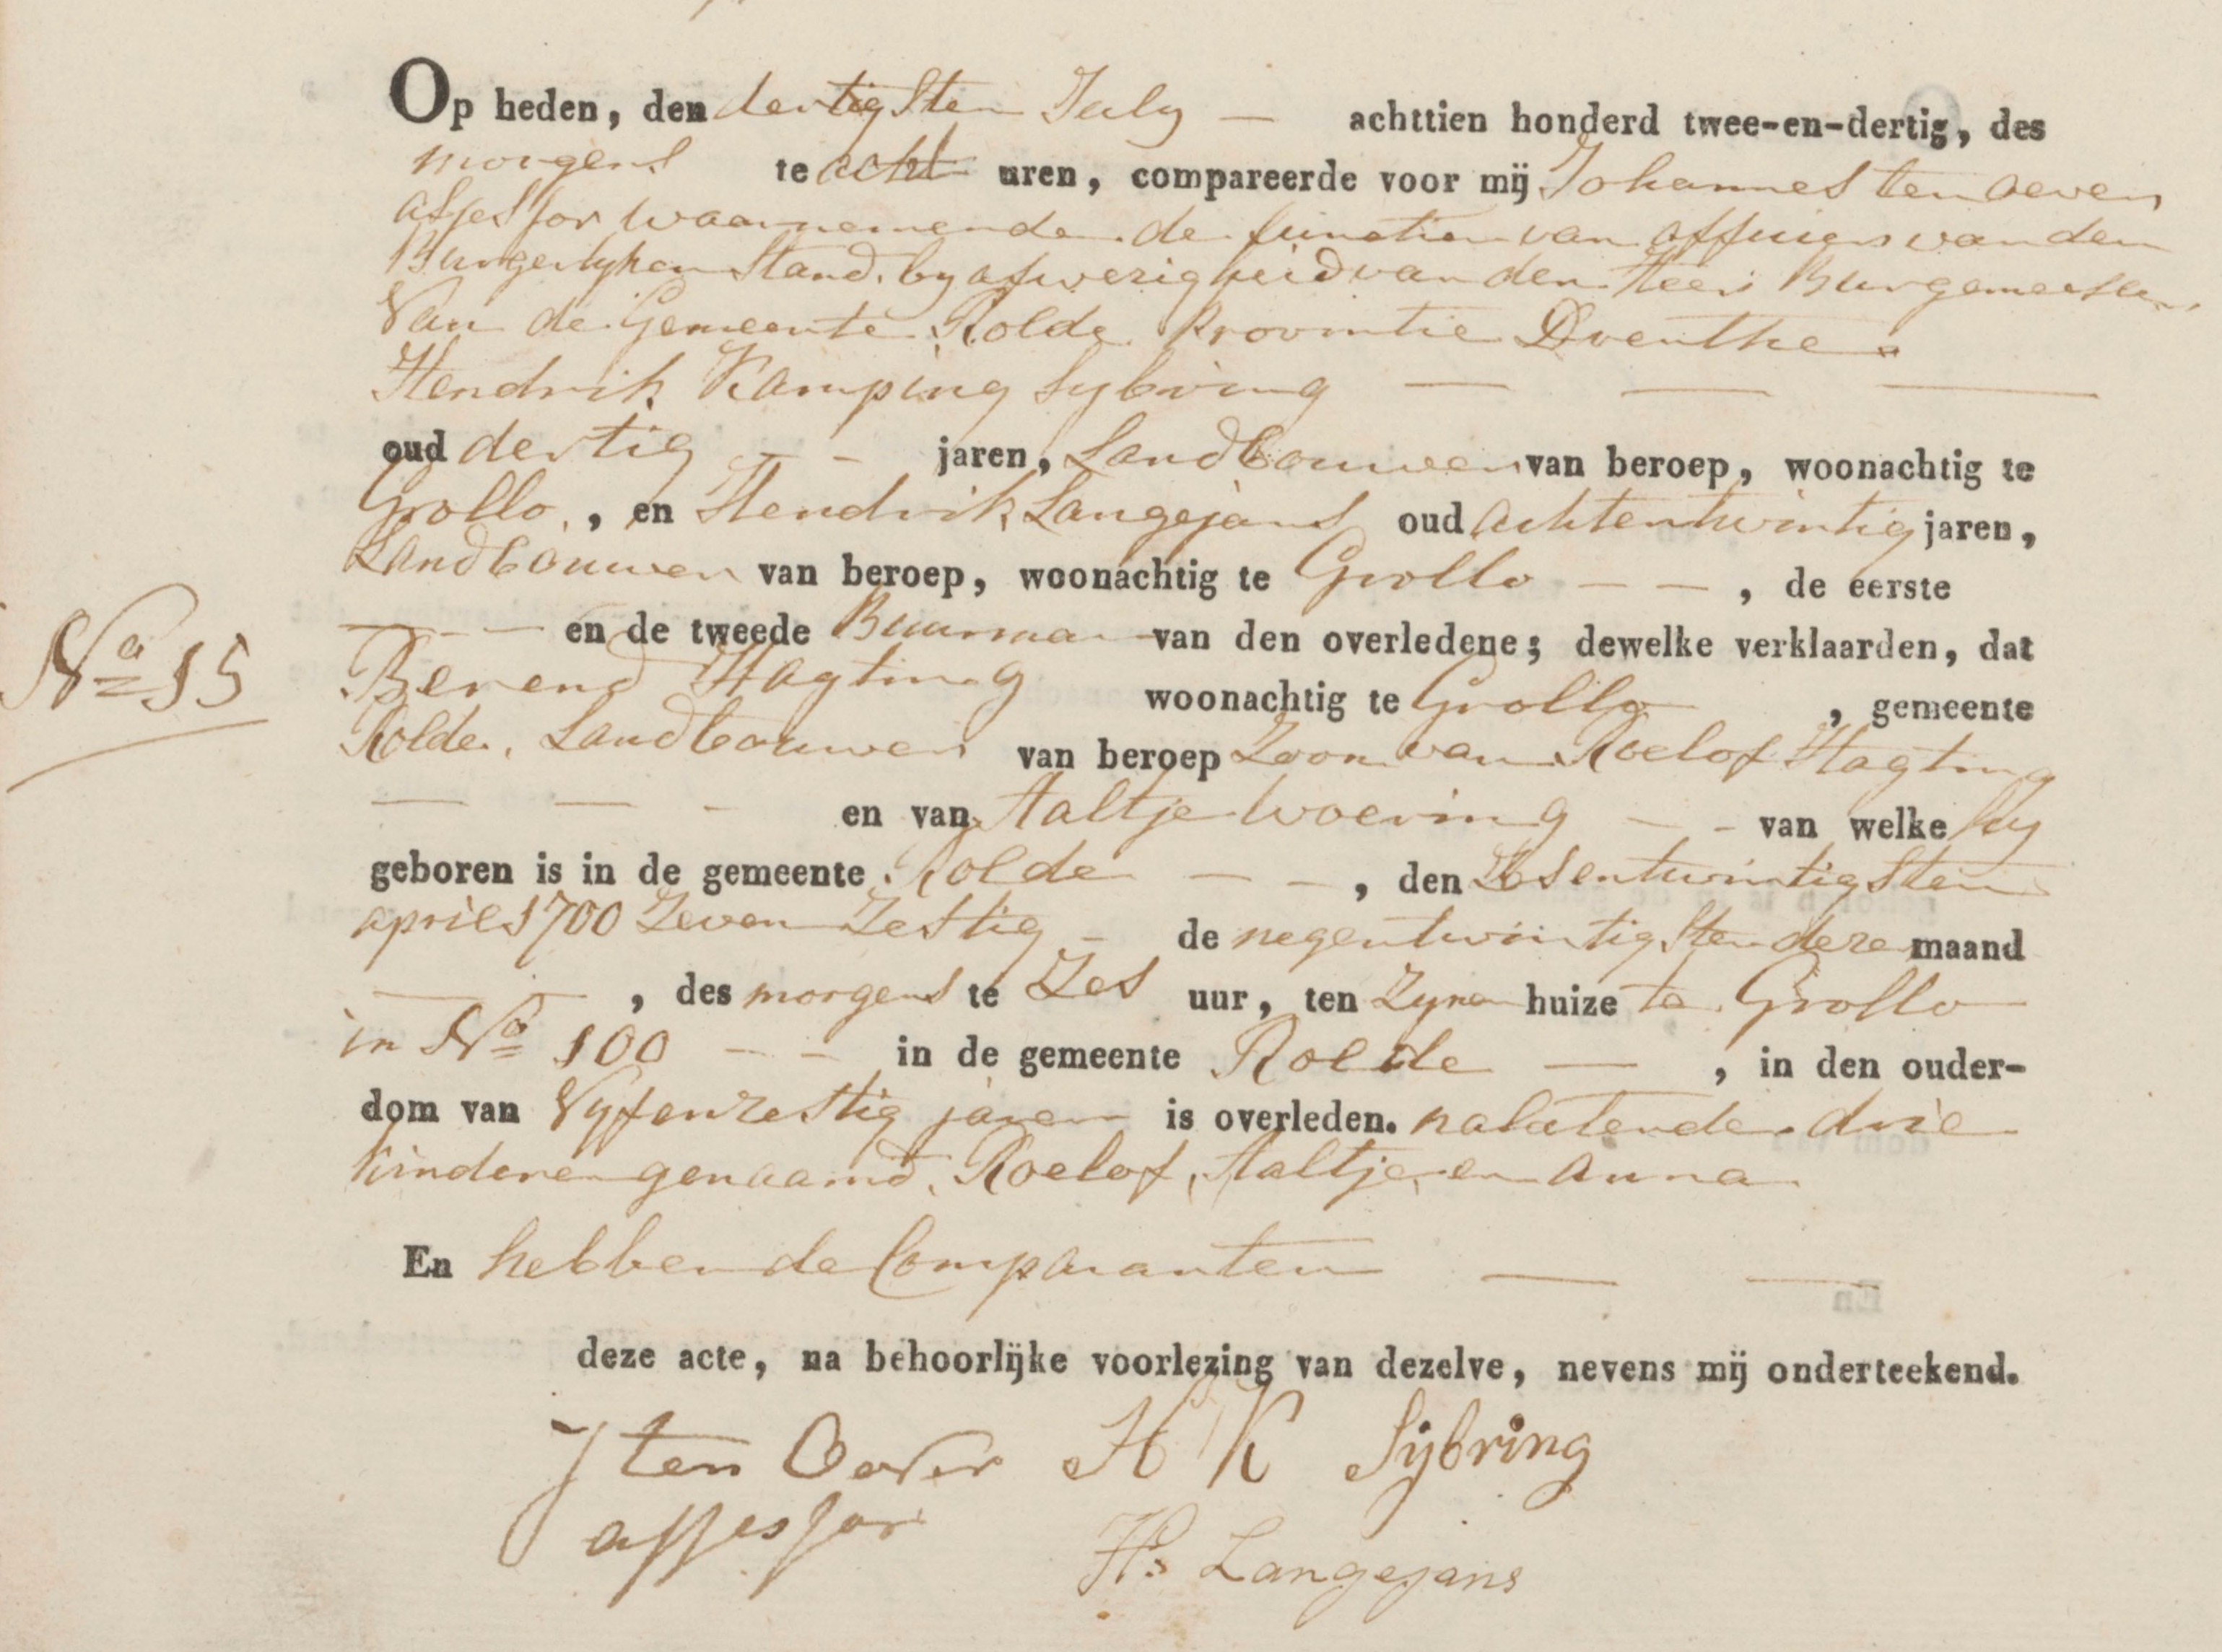 Op heden, den dertigsten July — achttien honderd twee-en-dertig, des
morgens te acht uren, compareerde voor mij Johannes ten oever,
assessor waarnemende de functien van officier van den
Burgerlyken Stand. by afwezigheid van den Heer Burgemeester
Van de Gemeente Rolde Provintie Drenthe.
Hendrik Kamping Sybring — — —
oud dertig - - jaren, Landbouwer van beroep, woonachtig te
Grollo, en Hendrik Langejans oud achtentwintig jaren,
Landbouwer van beroep, woonachtig te Grollo — —, de eerste
— - — en de tweede Buurman van den overledene; dewelke verklaarden, dat
Berend Hagting woonachtig te Grollo, gemeente
No 15
Rolde, Landbouwer van beroep Zoon van Roelof Hagting
— — - en van Aaltje Woering — - van welke hy
geboren is in de gemeente Rolde — —, den Zesentwintigsten
april 1700 Zeven Zestig - de negentwintigsten deze maand
— —, des morgens te Zes uur, ten Zynen huize te Grollo
in No 100 — — in de gemeente Rolde —, in den ouder-
dom van Vyfenzestig jaren is overleden. nalatende drie
kinderen genaamd, Roelof, Aaltje, en Anna
En hebben de Comparanten — —
deze acte, na behoorlijke voorlezing van dezelve, nevens mij onderteekend.
J ten Oever H K Sijbring
assessor
Hs Langejans